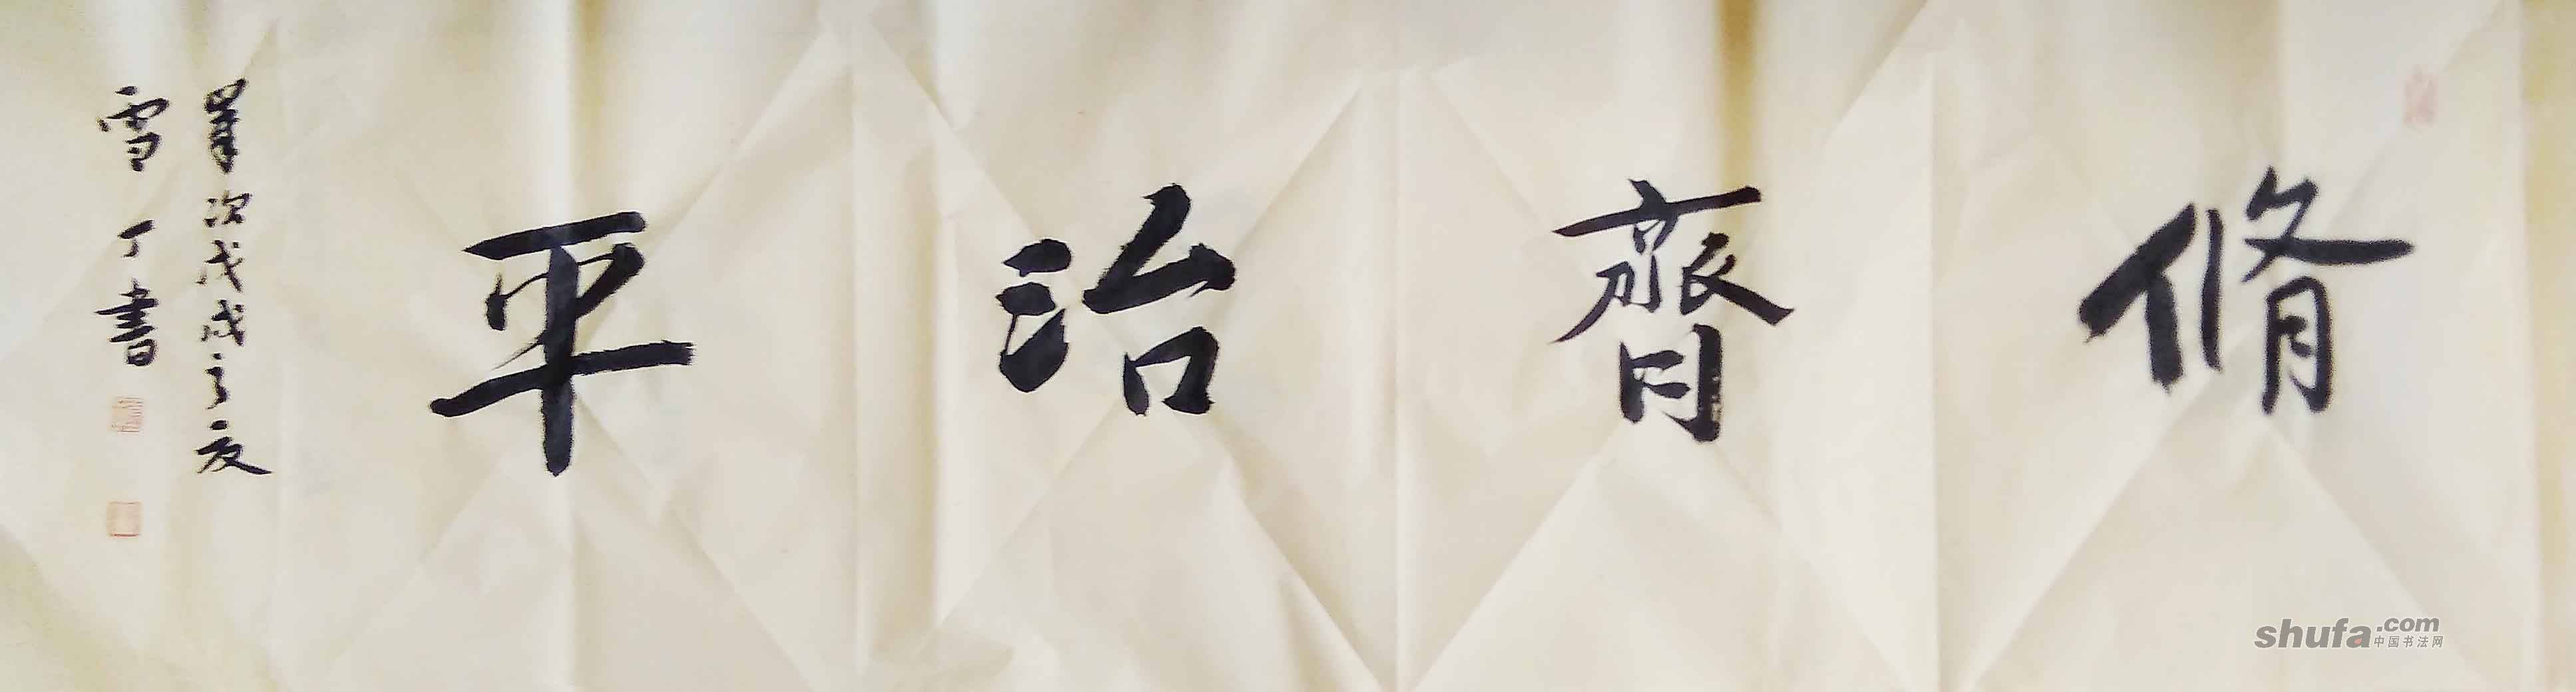 脩齊治平
歲次戊戌之夏
雪丁書
shufa.com
中国书法网